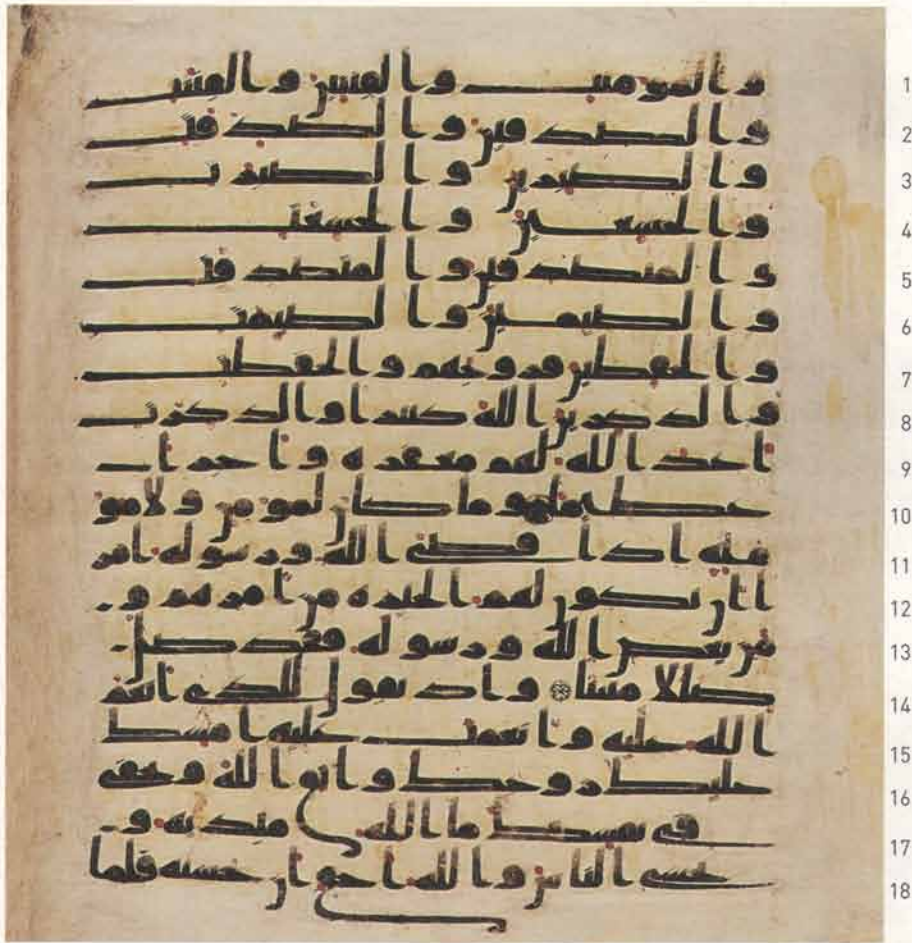 والمومنت والقنتين والقنتت 1
والصدقين والصدقت 2
والصبرين والصبرت 3
والخشعين والخشعت 4
والمتصدقين والمتصدقت 5
والصيمين والصيمت 6
والحفظين فروجهم والحفظت 7
والذكرين الله كثيرا والذكرت 8
اعد الله لهم مغفرة واجرا 9
عظيما وما كان لمومن ولا مو 10
منة اذا قضى الله ورسوله امر 11
ا ان يكون لهم الخيرة من امرهم و 12
من يعص الله ورسوله فقد ضل 13
ضللا مبينا واذ تقول للذي انعم 14
الله عليه وانعمت عليه امسك 15
عليك زوجك واتق الله وتخفى 16
في نفسك ما الله مبديه و 17
تخشى الناس والله احق ان تخشيه فلما 18